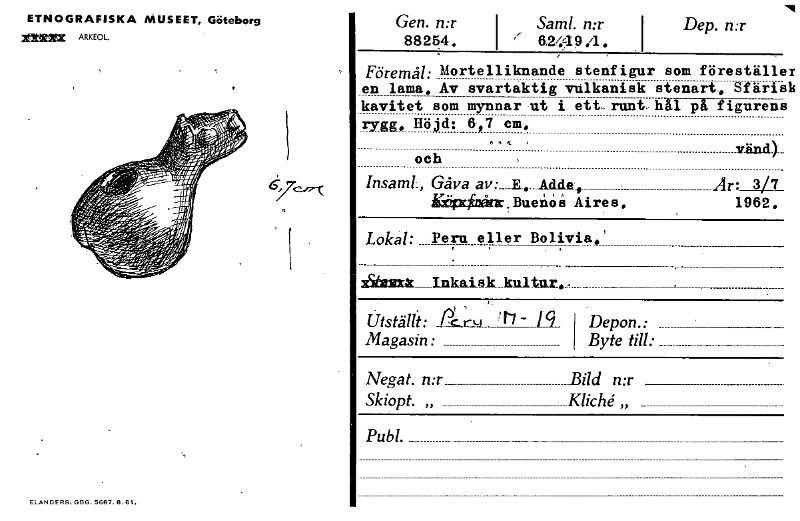 ETNOGRAFISKA MUSEET, Göteborg
ARKEOL.
6,7cm
ELANDERS. GBG. 5687. 8. 61.
Gen. n:r Saml. n:r Dep. n:r
88254. 62.19.1.
Föremål: Mortelliknande stenfigur som föreställer
en lama. Av svartaktig vulkanisk stenart. Sfärisk
kavitet som mynnar ut i ett runt hål på figurens
rygg. Höjd: 6,7 cm.
vänd)
och
Insaml., Gåva av: E. Adde, År: 3/7
Buenos Aires. 1962.
Lokal: Peru eller Bolivia.
Inkaisk kultur.
Utställt: Peru M-19 Depon.:
Magasin: Byte till:
Negat. n:r Bild n:r
Skiopt. „ Kliché „
Publ.